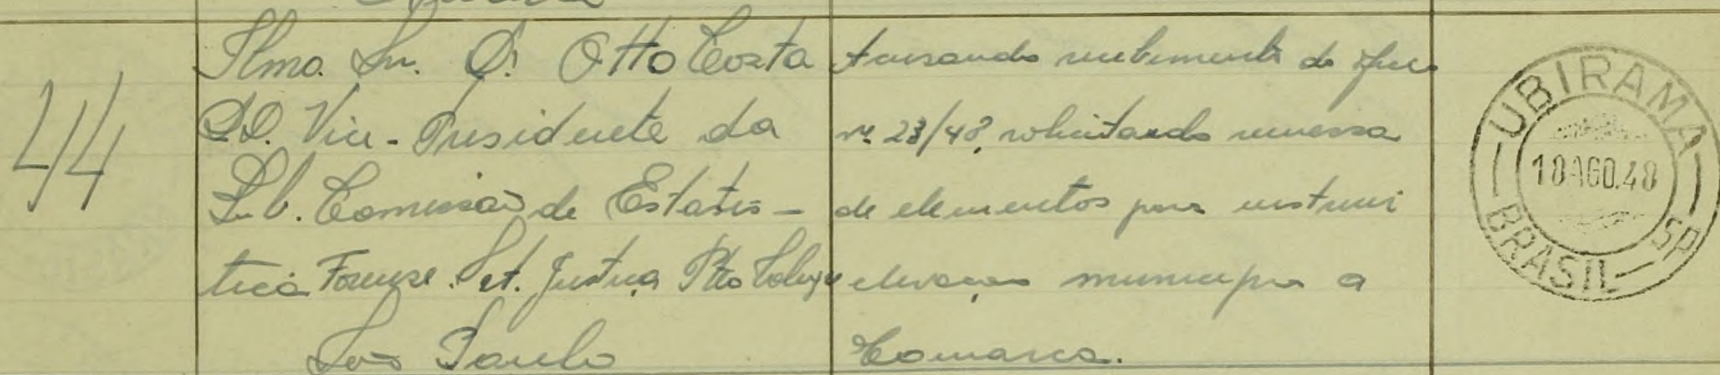 44
Ilmo. Sr. D. Otto Costa
DD. Vice-Presidente da
Sub. Comissão de Estatis-
tica Forense. Set. Justiça Pto Colegio
São Paulo
Acusando recebimento do oficio
nº 23/48, solicitando remessa
de elementos para instruir
elevação municipio a
Comarca.
UBIRAMA
18 AGO.48
BRASIL - SP